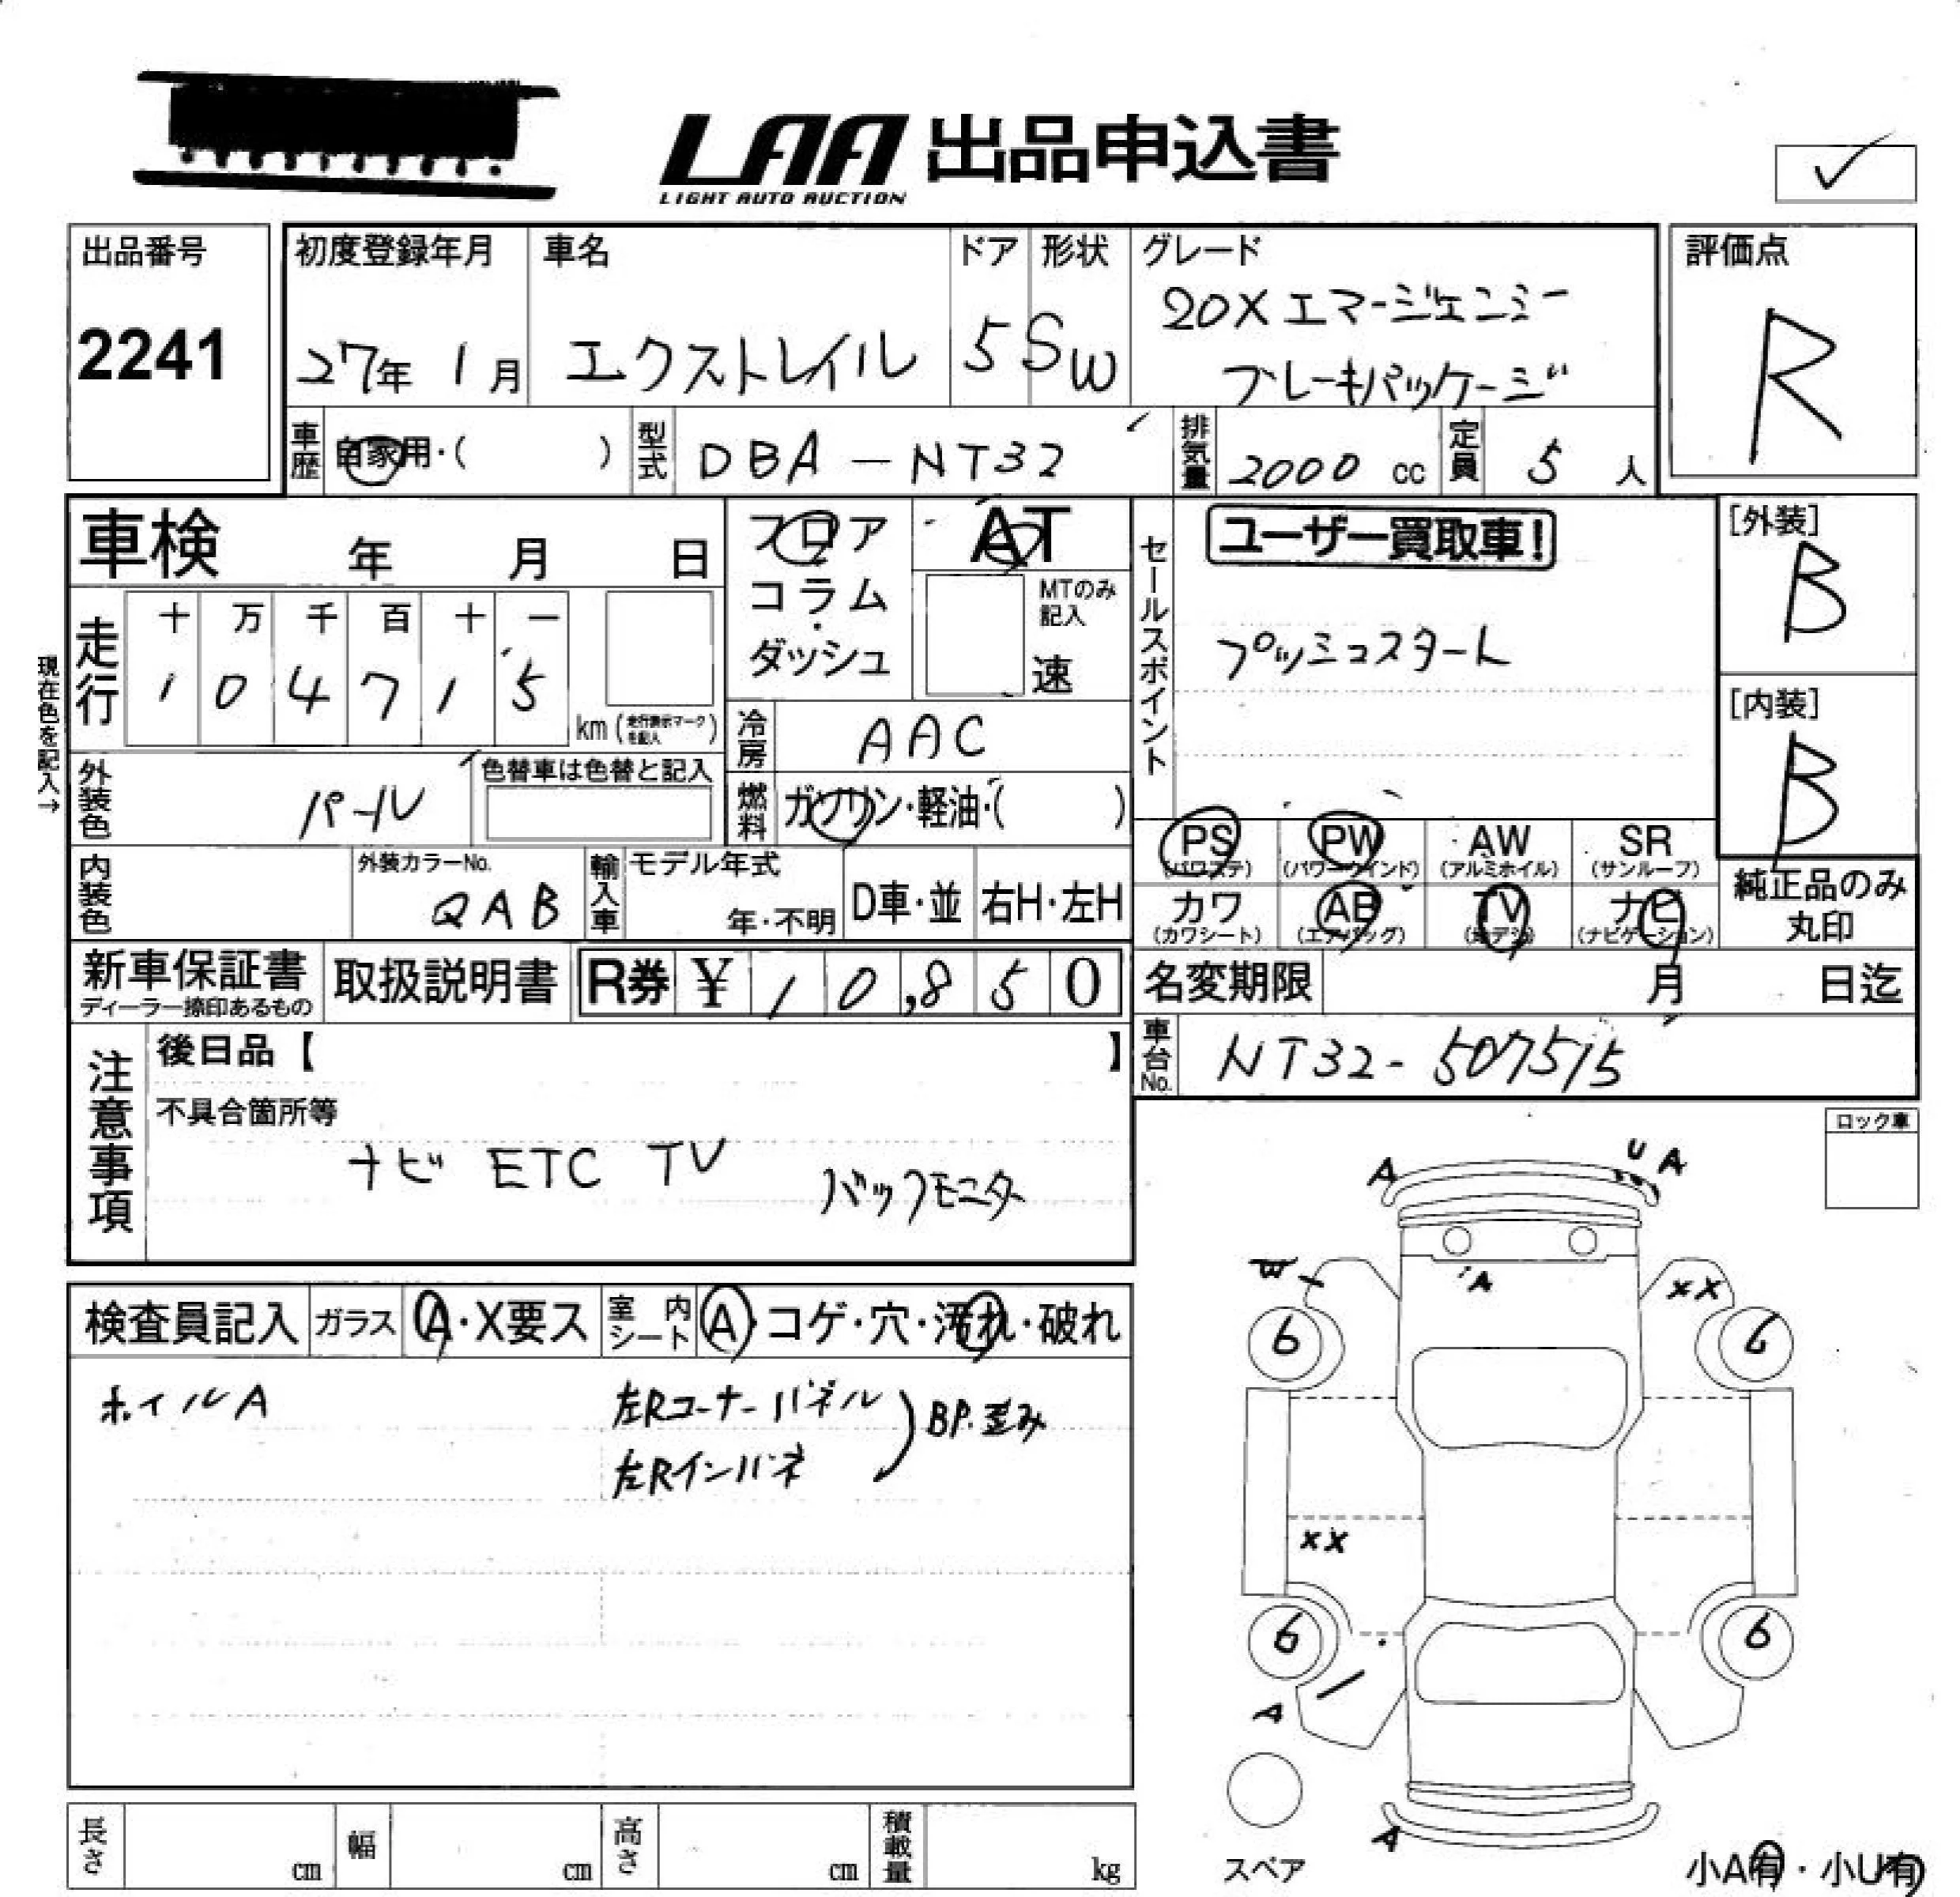 LAA 出品申込書
LIGHT AUTO AUCTION
✓
出品番号
2241
初度登録年月
27年 1月
車名
エクストレイル
ドア
5
形状
SW
グレード
20X エマージェンシー
ブレーキパッケージ
評価点
R
車歴
自家用・( )
型式
DBA-NT32
排気量
2000 cc
定員
5 人
車検 年 月 日
フロア
コラム
・
ダッシュ
AT
MTのみ
記入
速
セールスポイント
ユーザー買取車!
プッシュスタート
[外装]
B
[内装]
B
現在色を記入→
走行
十 万 千 百 十 一
1 0 4 7 1 5
km (走行表示マークを記入)
冷房
AAC
外装色
パール
色替車は色替と記入
燃料
ガソリン・軽油・( )
PS AW SR PW
(パワステ) (パワーウインド) (アルミホイル) (サンルーフ)
カワ AB TV ナビ
(カワシート) (エアバッグ) (地デジ) (ナビゲーション)
純正品のみ
丸印
内装色
外装カラーNo.
QAB
輸入車
モデル年式
年・不明
D車・並
右H・左H
新車保証書
ディーラー捺印あるもの
取扱説明書
R券 ¥ 10,850
名変期限 月 日迄
車台No.
NT32-507515
注意事項
後日品【 】
不具合箇所等
ナビ ETC TV バックモニター
ロック車
検査員記入
ガラス
A・X要ス
室内シート
A・コゲ・穴・汚れ・破れ
ホイルA
左Rコーナーパネル
左Rインパネ
BP.歪み
A
U A
W
A
XX
6
6
XX
6
6
A
A
スペア
小A有・小U有
長さ cm
幅 cm
高さ cm
積載量 kg